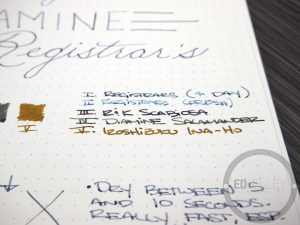 AMINE
Registrar's
I. REGISTRARS (+ DAY)
II. REGISTRARS (FRESH)
III. R&K SCABIOSA
IV. DIAMINE SALAMANDER
V. V. IROSHIZUKU INA-HO
• DRY BETWEEN 5
AND 10 SECONDS.
REALLY FAST, ESP.